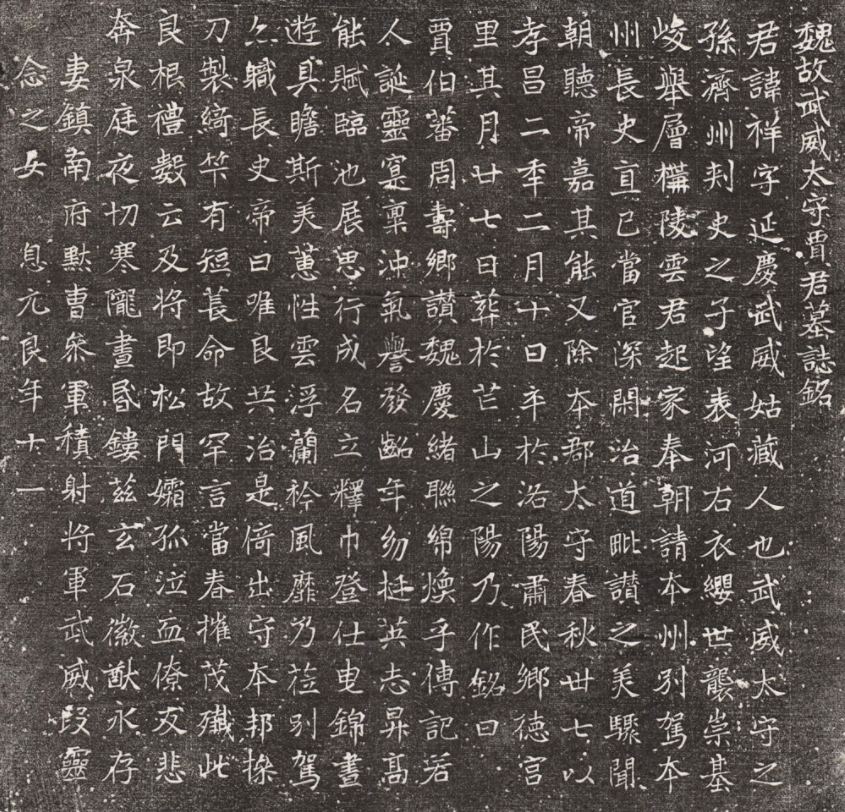 魏故武威太守賈君墓誌銘
君諱祥字延慶武威姑藏人也武威太守之
孫濟州刾史之子望表河右衣纓世襲崇基
峻舉層構陵雲君起家奉朝請本州別駕本
州長史直已當官深閑治道毗讃之美驟聞
朝聽帝嘉其能又除本郡太守春秋卌七以
孝昌二年二月十日卒於洛陽肅民鄉德宮
里其月廿七日葬於芒山之陽乃作銘曰
賈伯蕃周壽鄉讃魏慶緒聯綿煥乎傳記若
人誕靈寔稟沖氣譽發齠年幼挺英志昇高
能賦臨池展思行成名立釋巾登仕曳錦晝
遊具瞻斯美蕙性雲浮蘭衿風靡乃莅別駕
亦職長史帝曰唯良共治是倚出守本邦操
刀製綺竿有短長命故罕言當春摧茂殲此
良根禮數云及將即松門孀孤泣血僚友悲
奔泉庭夜切寒隴晝昏鏤茲玄石徽猷永存
妻鎮南府默曹叅軍積射將軍武威段靈
念之女 息元良年十一